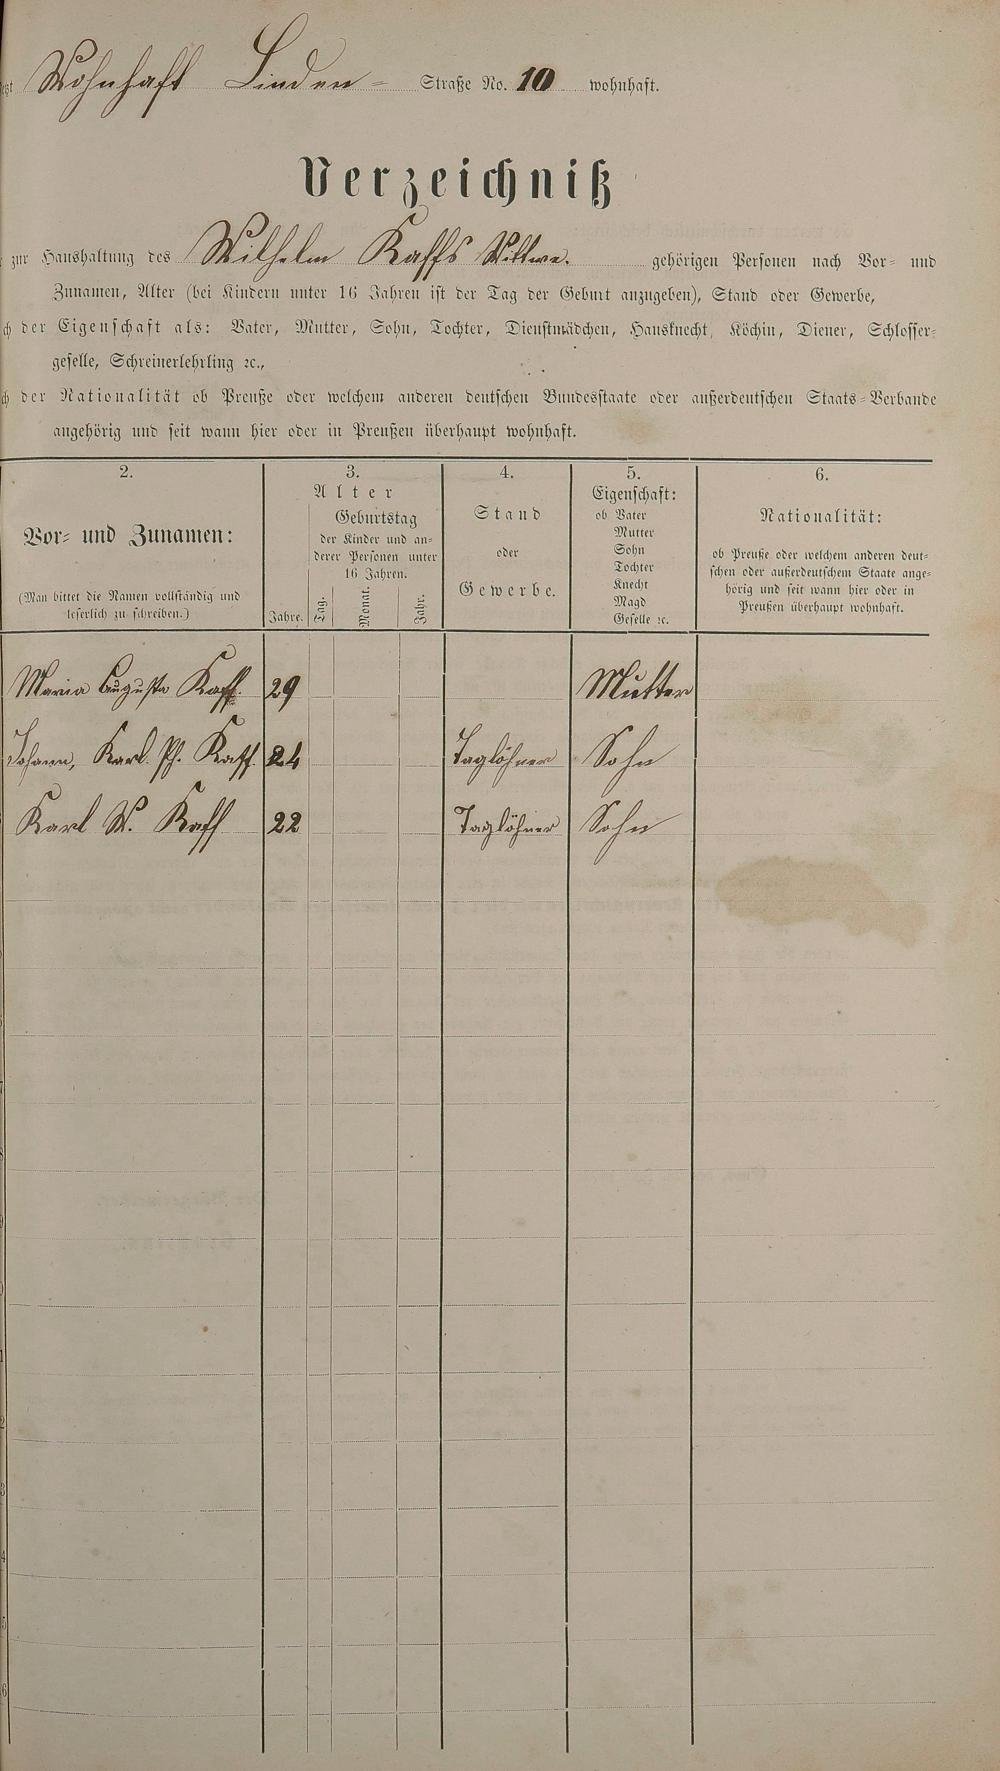 Wohnhaft Linden- Straße No. 10 wohnhaft.
Verzeichniß
zur Haushaltung des Wilhelm Kaffs Wittwe. gehörigen Personen nach Vor- und
Zunamen, Alter (bei Kindern unter 16 Jahren ist der Tag der Geburt anzugeben), Stand oder Gewerbe,
der Eigenschaft als: Vater, Mutter, Sohn, Tochter, Dienstmädchen, Hausknecht, Köchin, Diener, Schlosser-
geselle, Schreinerlehrling ꝛc.,
der Nationalität ob Preuße oder welchem anderen deutschen Bundesstaate oder außerdeutschen Staats-Verbande
angehörig und seit wann hier oder in Preußen überhaupt wohnhaft.
2.
Vor- und Zunamen:
(Man bittet die Namen vollständig und
leserlich zu schreiben.)
3.
Alter
Geburtstag
der Kinder und an-
derer Personen unter
16 Jahren.
Jahre. Tag. Monat. Jahr.
4.
Stand
oder
Gewerbe.
5.
Eigenschaft:
ob Vater
Mutter
Sohn
Tochter
Knecht
Magd
Geselle ꝛc.
6.
Nationalität:
ob Preuße oder welchem anderen deut-
schen oder außerdeutschem Staate ange-
hörig und seit wann hier oder in
Preußen überhaupt wohnhaft.
Maria Augusta Kaff. 29 Mutter
Johann, Karl. Ph. Kaff. 24 Taglöhner Sohn
Karl W. Kaff 22 Taglöhner Sohn